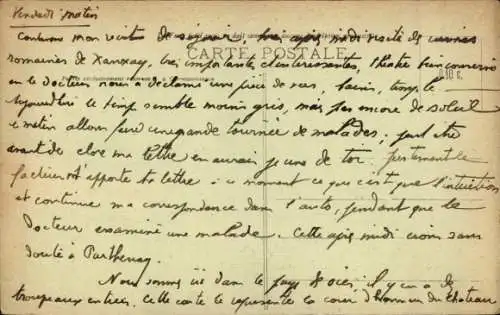 Vendredi matin
Continue mon
CARTE POSTALE
romaines de Sanxay, très importante et intéressantes, théâtre bien conservé
en le docteur nous a déclamé une pièce de vers, bains, temple
aujourd'hui le temps semble moins gris, mais pas encore de soleil
ce matin allons faire une grande tournée de malades, peut être
avant de clore ma lettre en aurais je une de toi. justement le
facteur apporte ta lettre à ce moment ce que c'est que l'intuition
et continue ma correspondance dans l'auto, pendant que le
Docteur examine une malade. Cette après midi irons sans
doute à Parthenay.
Nous sommes ici dans le pays d'oies, il y en a des
troupeaux entiers. Cette carte te représente la cour d'honneur du chateau